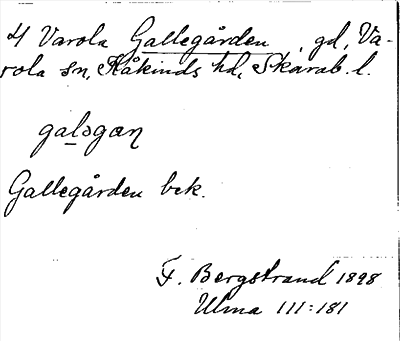 4 Varola Gallegården, gd, Va-
rola sn, Kåkinds hd, Skarab. l.
galəgæn
Gallegården bek.
F. Bergstrand 1898
Ulma 111:181